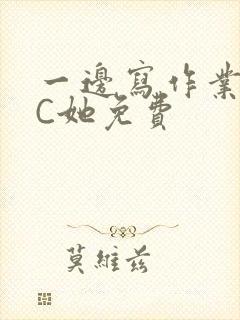 一邊寫作業
C她免費
莫維茲